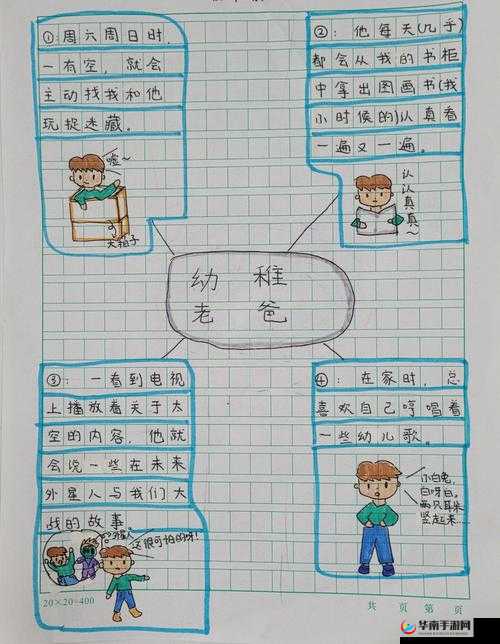 ①：周六周日时，
一有空，就会
主动找我和他
玩捉迷藏。
嘘～
大箱子
②：他每天(几乎)
都会从我的书柜
中拿出图画书(我
小时候的)认真看
一遍又一遍。
认认真真～
幼稚
老爸
③：一看到电视
上播放着关于太
空的内容，他就
会说一些在未来
外星人与我们大
战的故事。
这很可怕的呀！
④：在家时，总
喜欢自己哼唱着
一些幼儿歌。
小白兔，
白呀白，
两只耳朵
竖起来……
20×20=400
共 页 第 页
华南手游网